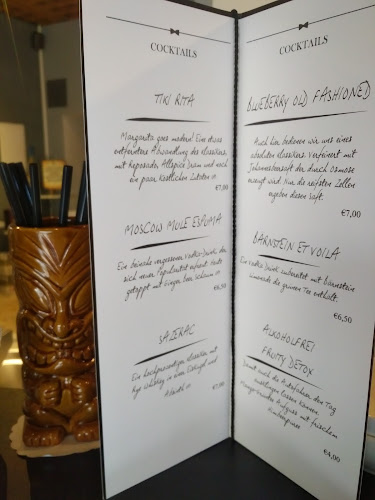 COCKTAILS
TIKI RITA
Margarita goes modern! Eine etwas
entfernte Abwandlung des Klassikers,
mit Reposado, Allspice Dram und noch
ein paar köstlichen Zutaten
€7,00
MOSCOW MULE ESPUMA
Ein beinahe vergessener Vodka-Drink, der
sich neuer Popularität erfreut. Heute
getoppt mit Ginger Beer Schaum
€6,50
SAZERAC
Ein hochprozentiger Klassiker mit
Rye Whiskey in einer Eiskugel und
Absinth
€7,00
COCKTAILS
BLUEBERRY OLD FASHIONED
Auch hier bedienen wir uns eines
absoluten Klassikers. Verfeinert mit
Johannisbeersaft der durch Osmose
erzeugt wird. Nur die reifsten Zellen
ergeben diesen Saft.
€7,00
BÄRNSTEIN ET VOILA
Ein Vodka Drink zubereitet mit Bärnstein
Limonade die grünen Tee enthält.
€6,50
ALKOHOLFREI
FRUITY DETOX
Damit auch die Autofahrer den Tag
ausklingen lassen können.
Aufguss mit frischem
€4,00